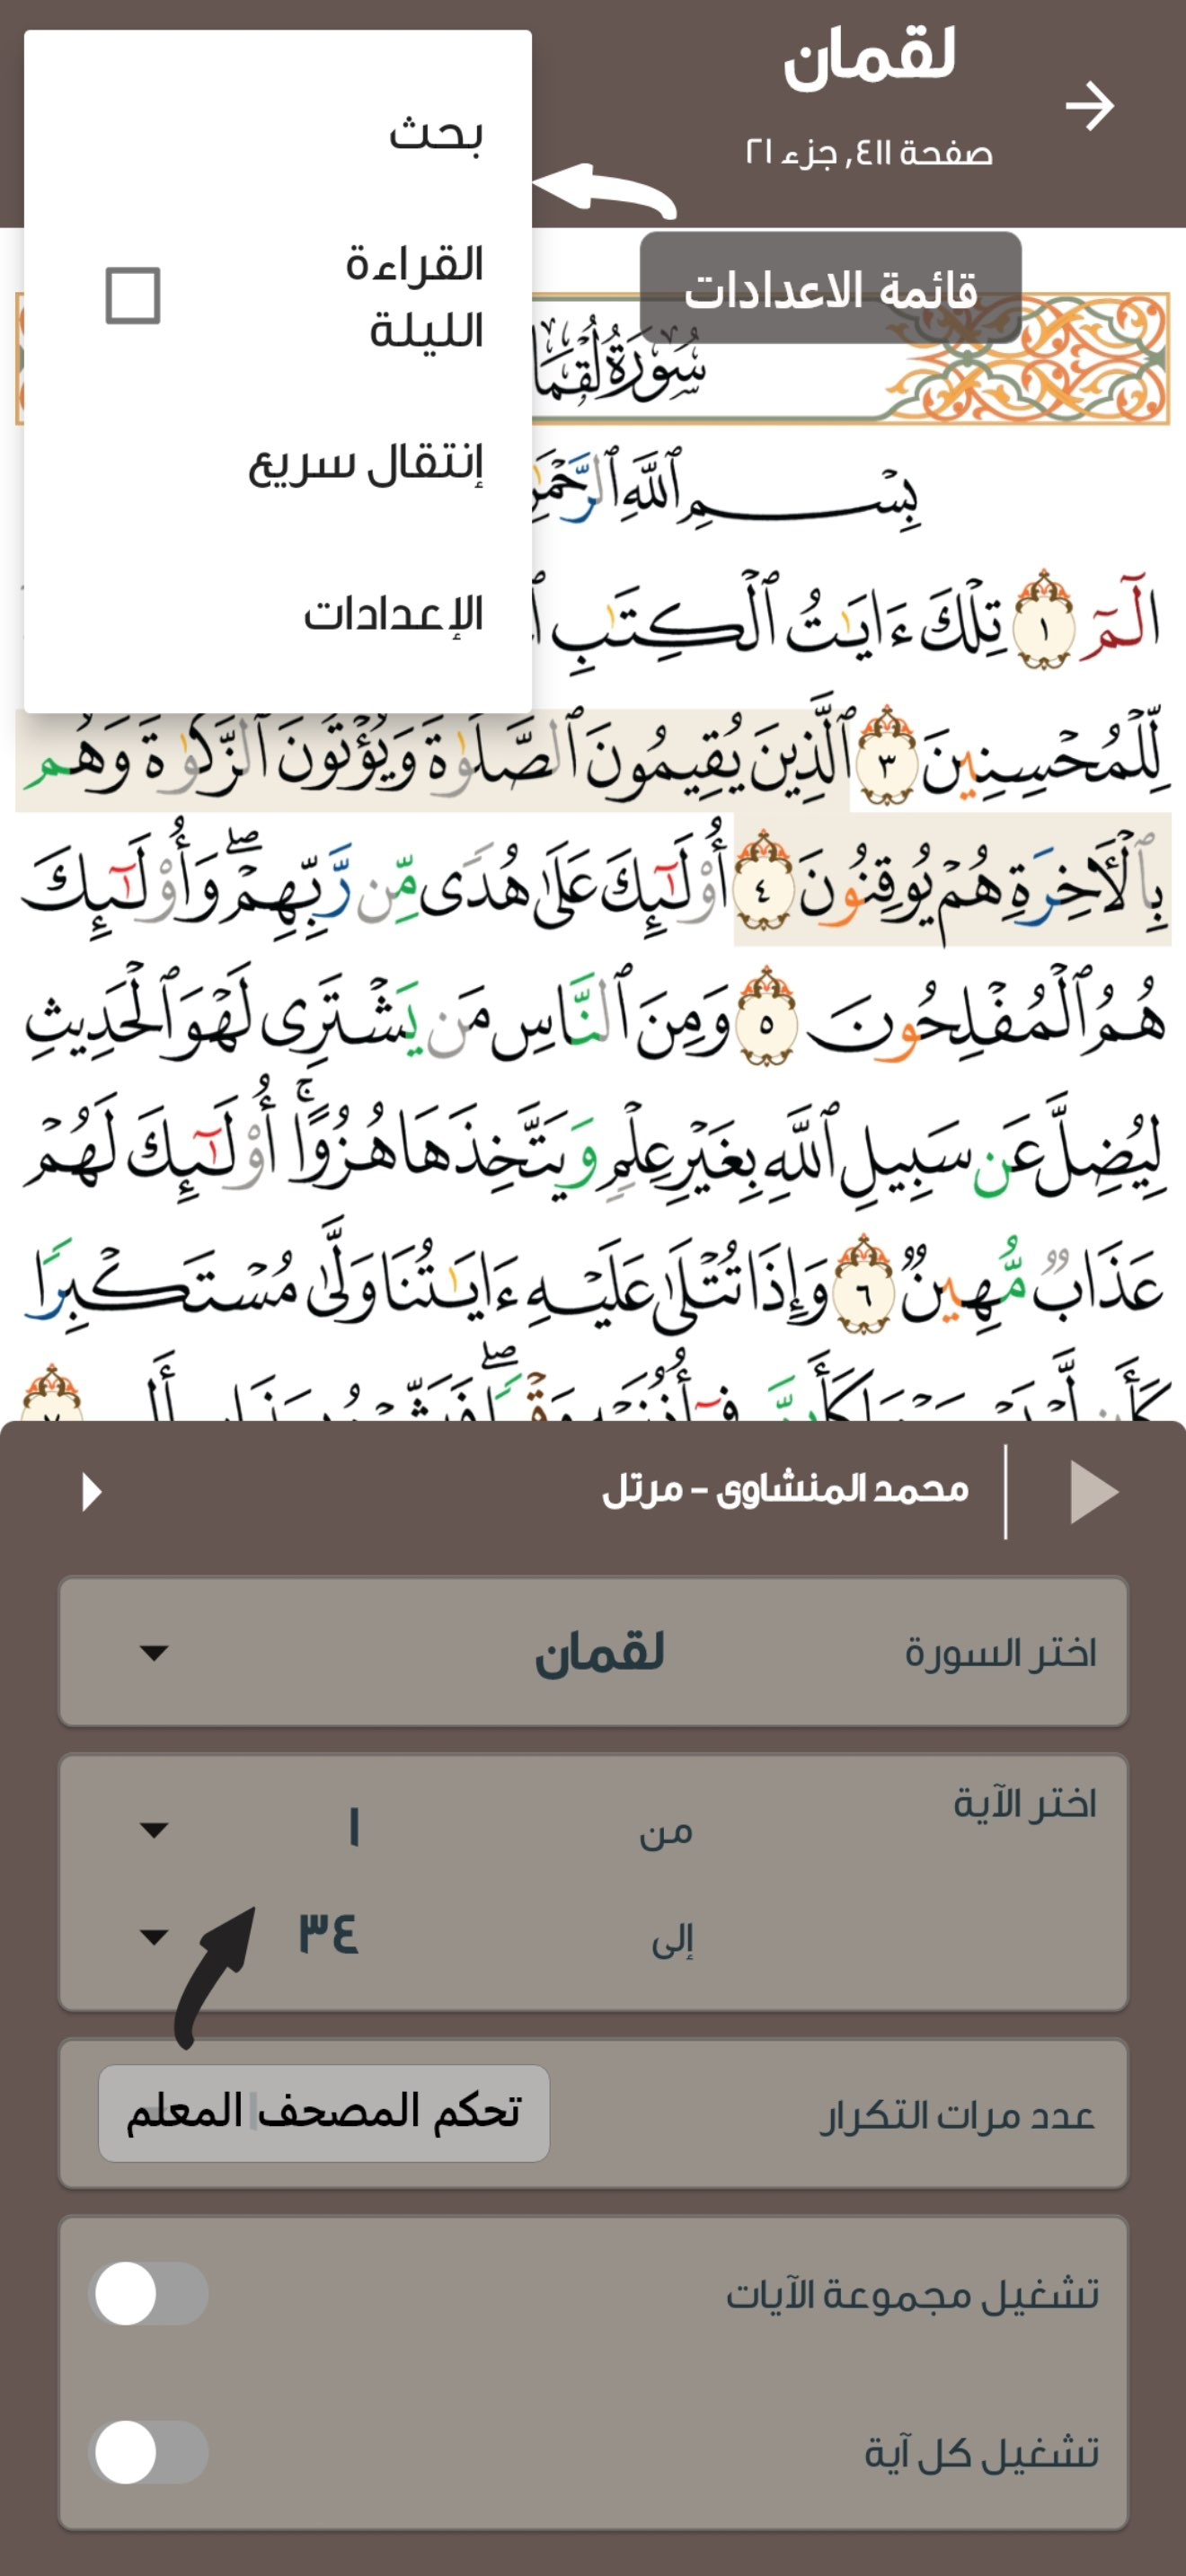 لقمان
صفحة ٤١١, جزء ٢١
بحث
القراءة
الليلة
إنتقال سريع
الإعدادات
قائمة الاعدادات
سُورَةُ لُقْمَا
بِسْمِ ٱللَّهِ ٱلرَّحْمَٰنِ
الٓمٓ ١ تِلْكَ ءَايَٰتُ ٱلْكِتَٰبِ
لِّلْمُحْسِنِينَ ٣ ٱلَّذِينَ يُقِيمُونَ ٱلصَّلَوٰةَ وَيُؤْتُونَ ٱلزَّكَوٰةَ وَهُم
بِٱلْأَخِرَةِ هُمْ يُوقِنُونَ ٤ أُوْلَٰٓئِكَ عَلَىٰ هُدًى مِّن رَّبِّهِمْۖ وَأُوْلَٰٓئِكَ
هُمُ ٱلْمُفْلِحُونَ ٥ وَمِنَ ٱلنَّاسِ مَن يَشْتَرِى لَهْوَ ٱلْحَدِيثِ
لِيُضِلَّ عَن سَبِيلِ ٱللَّهِ بِغَيْرِ عِلْمٍ وَيَتَّخِذَهَا هُزُوًاۚ أُوْلَٰٓئِكَ لَهُمْ
عَذَابٌ مُّهِينٌ ٦ وَإِذَا تُتْلَىٰ عَلَيْهِ ءَايَٰتُنَا وَلَّىٰ مُسْتَكْبِرًا
محمد المنشاوى - مرتل
اختر السورة لقمان
اختر الآية
من ١
إلى ٣٤
عدد مرات التكرار
تحكم المصحف المعلم
تشغيل مجموعة الآيات
تشغيل كل آية